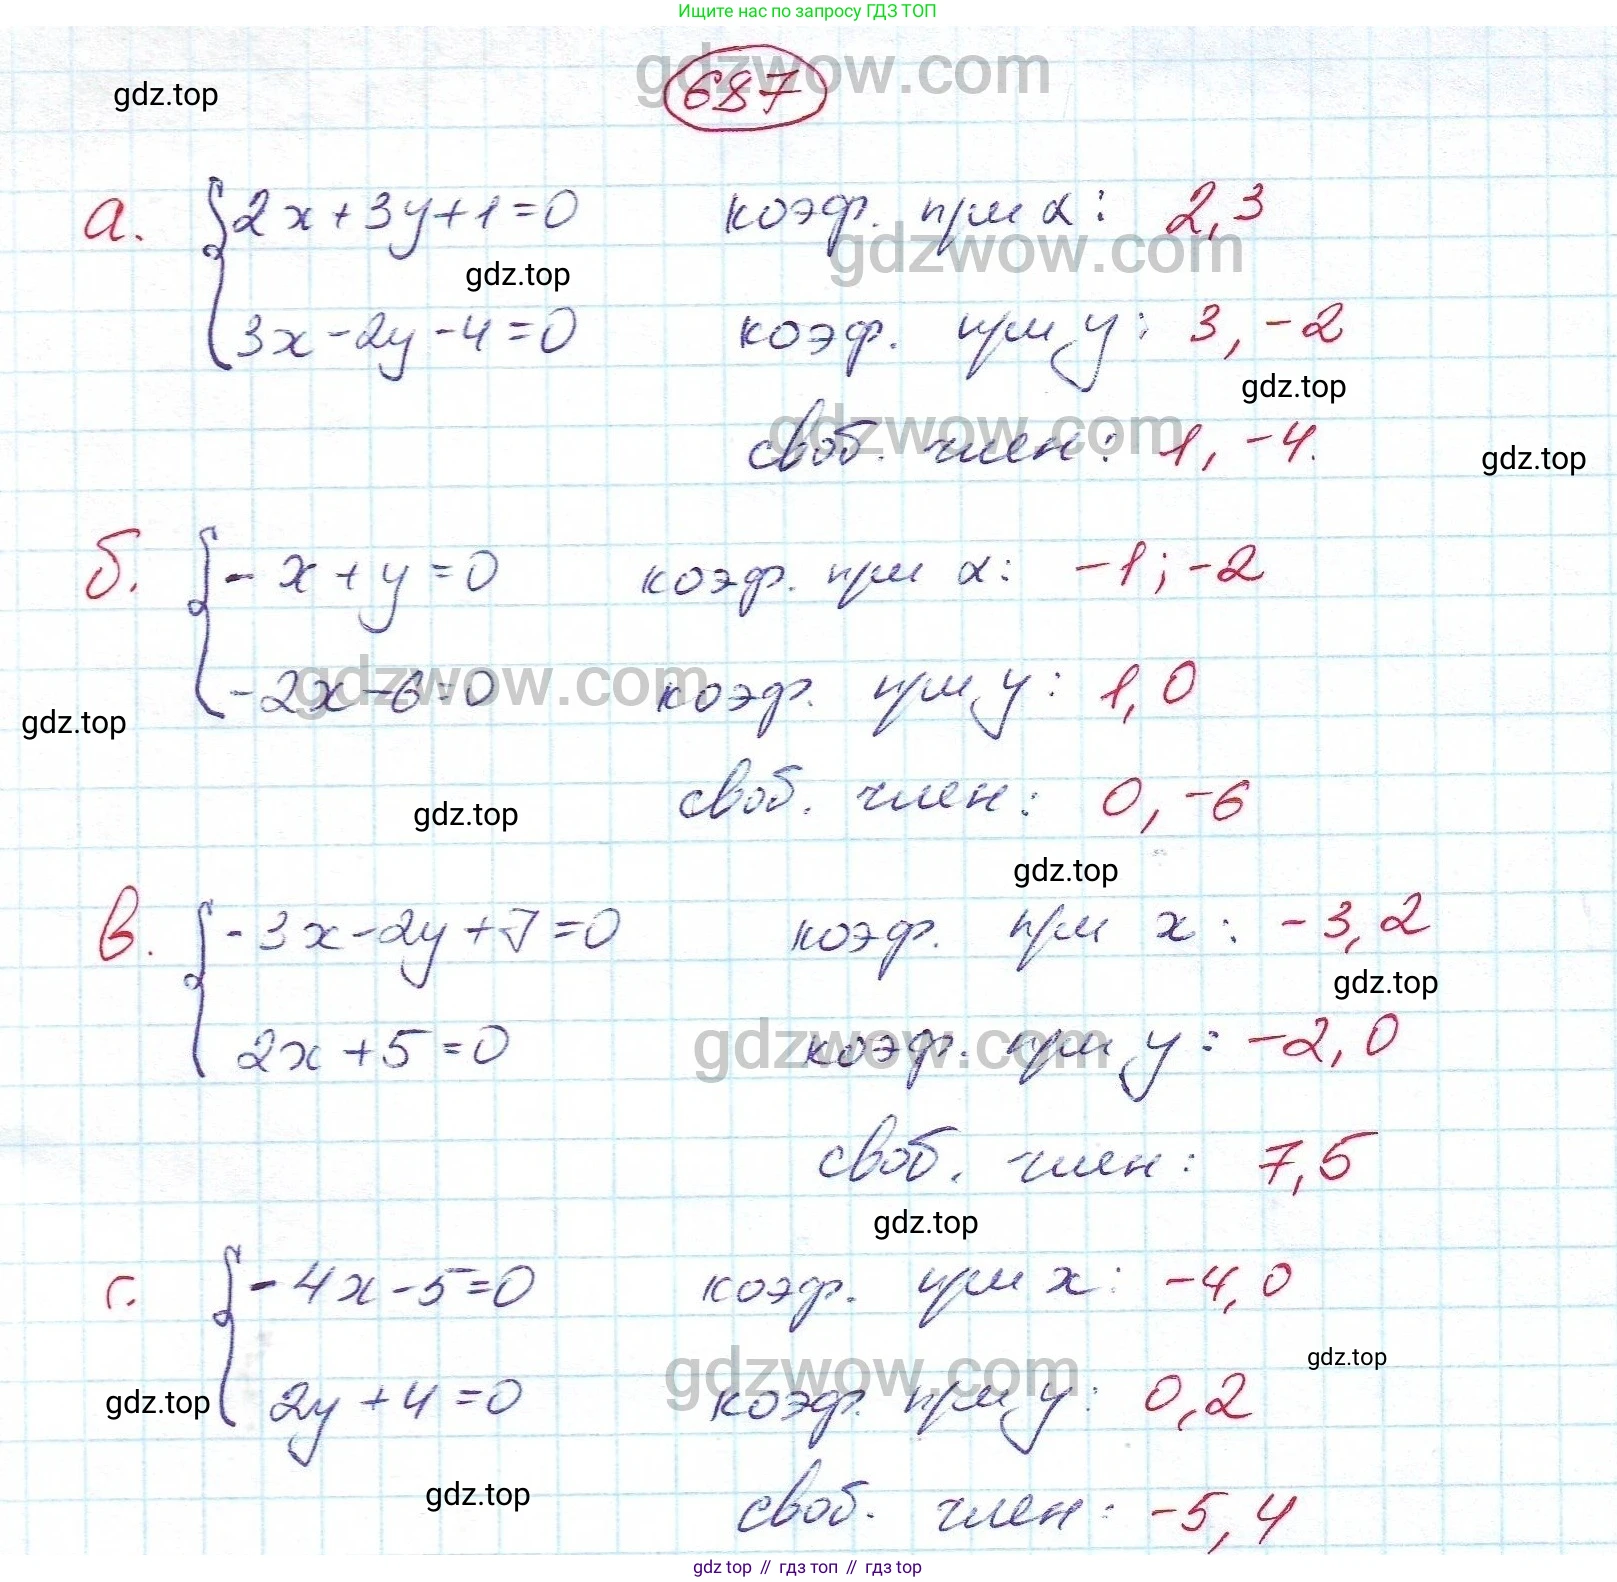 Ищите нас по запросу ГДЗ ТОП
gdzwow.com
687
gdz.top
а. 2x+3y+1=0 коэф. при x: 2,3
gdzwow.com
gdz.top
3x-2y-4=0 коэф. при y: 3,-2
gdz.top
gdzwow.com
своб. член: 1,-4.
gdz.top
б. -x+y=0 коэф. при x: -1;-2
gdzwow.com
-2x-6=0 коэф. при y: 1,0
gdz.top
своб. член: 0,-6
gdz.top
gdz.top
в. -3x-2y+7=0 коэф. при x: -3,2
gdz.top
gdzwow.com
2x+5=0 коэф. при y: -2,0
своб. член: 7,5
gdz.top
г. -4x-5=0 коэф. при x: -4,0
gdz.top
gdzwow.com
2y+4=0 коэф. при y: 0,2
gdz.top
gdz.top
своб. член: -5,4
gdz top // гдз топ // гдз top